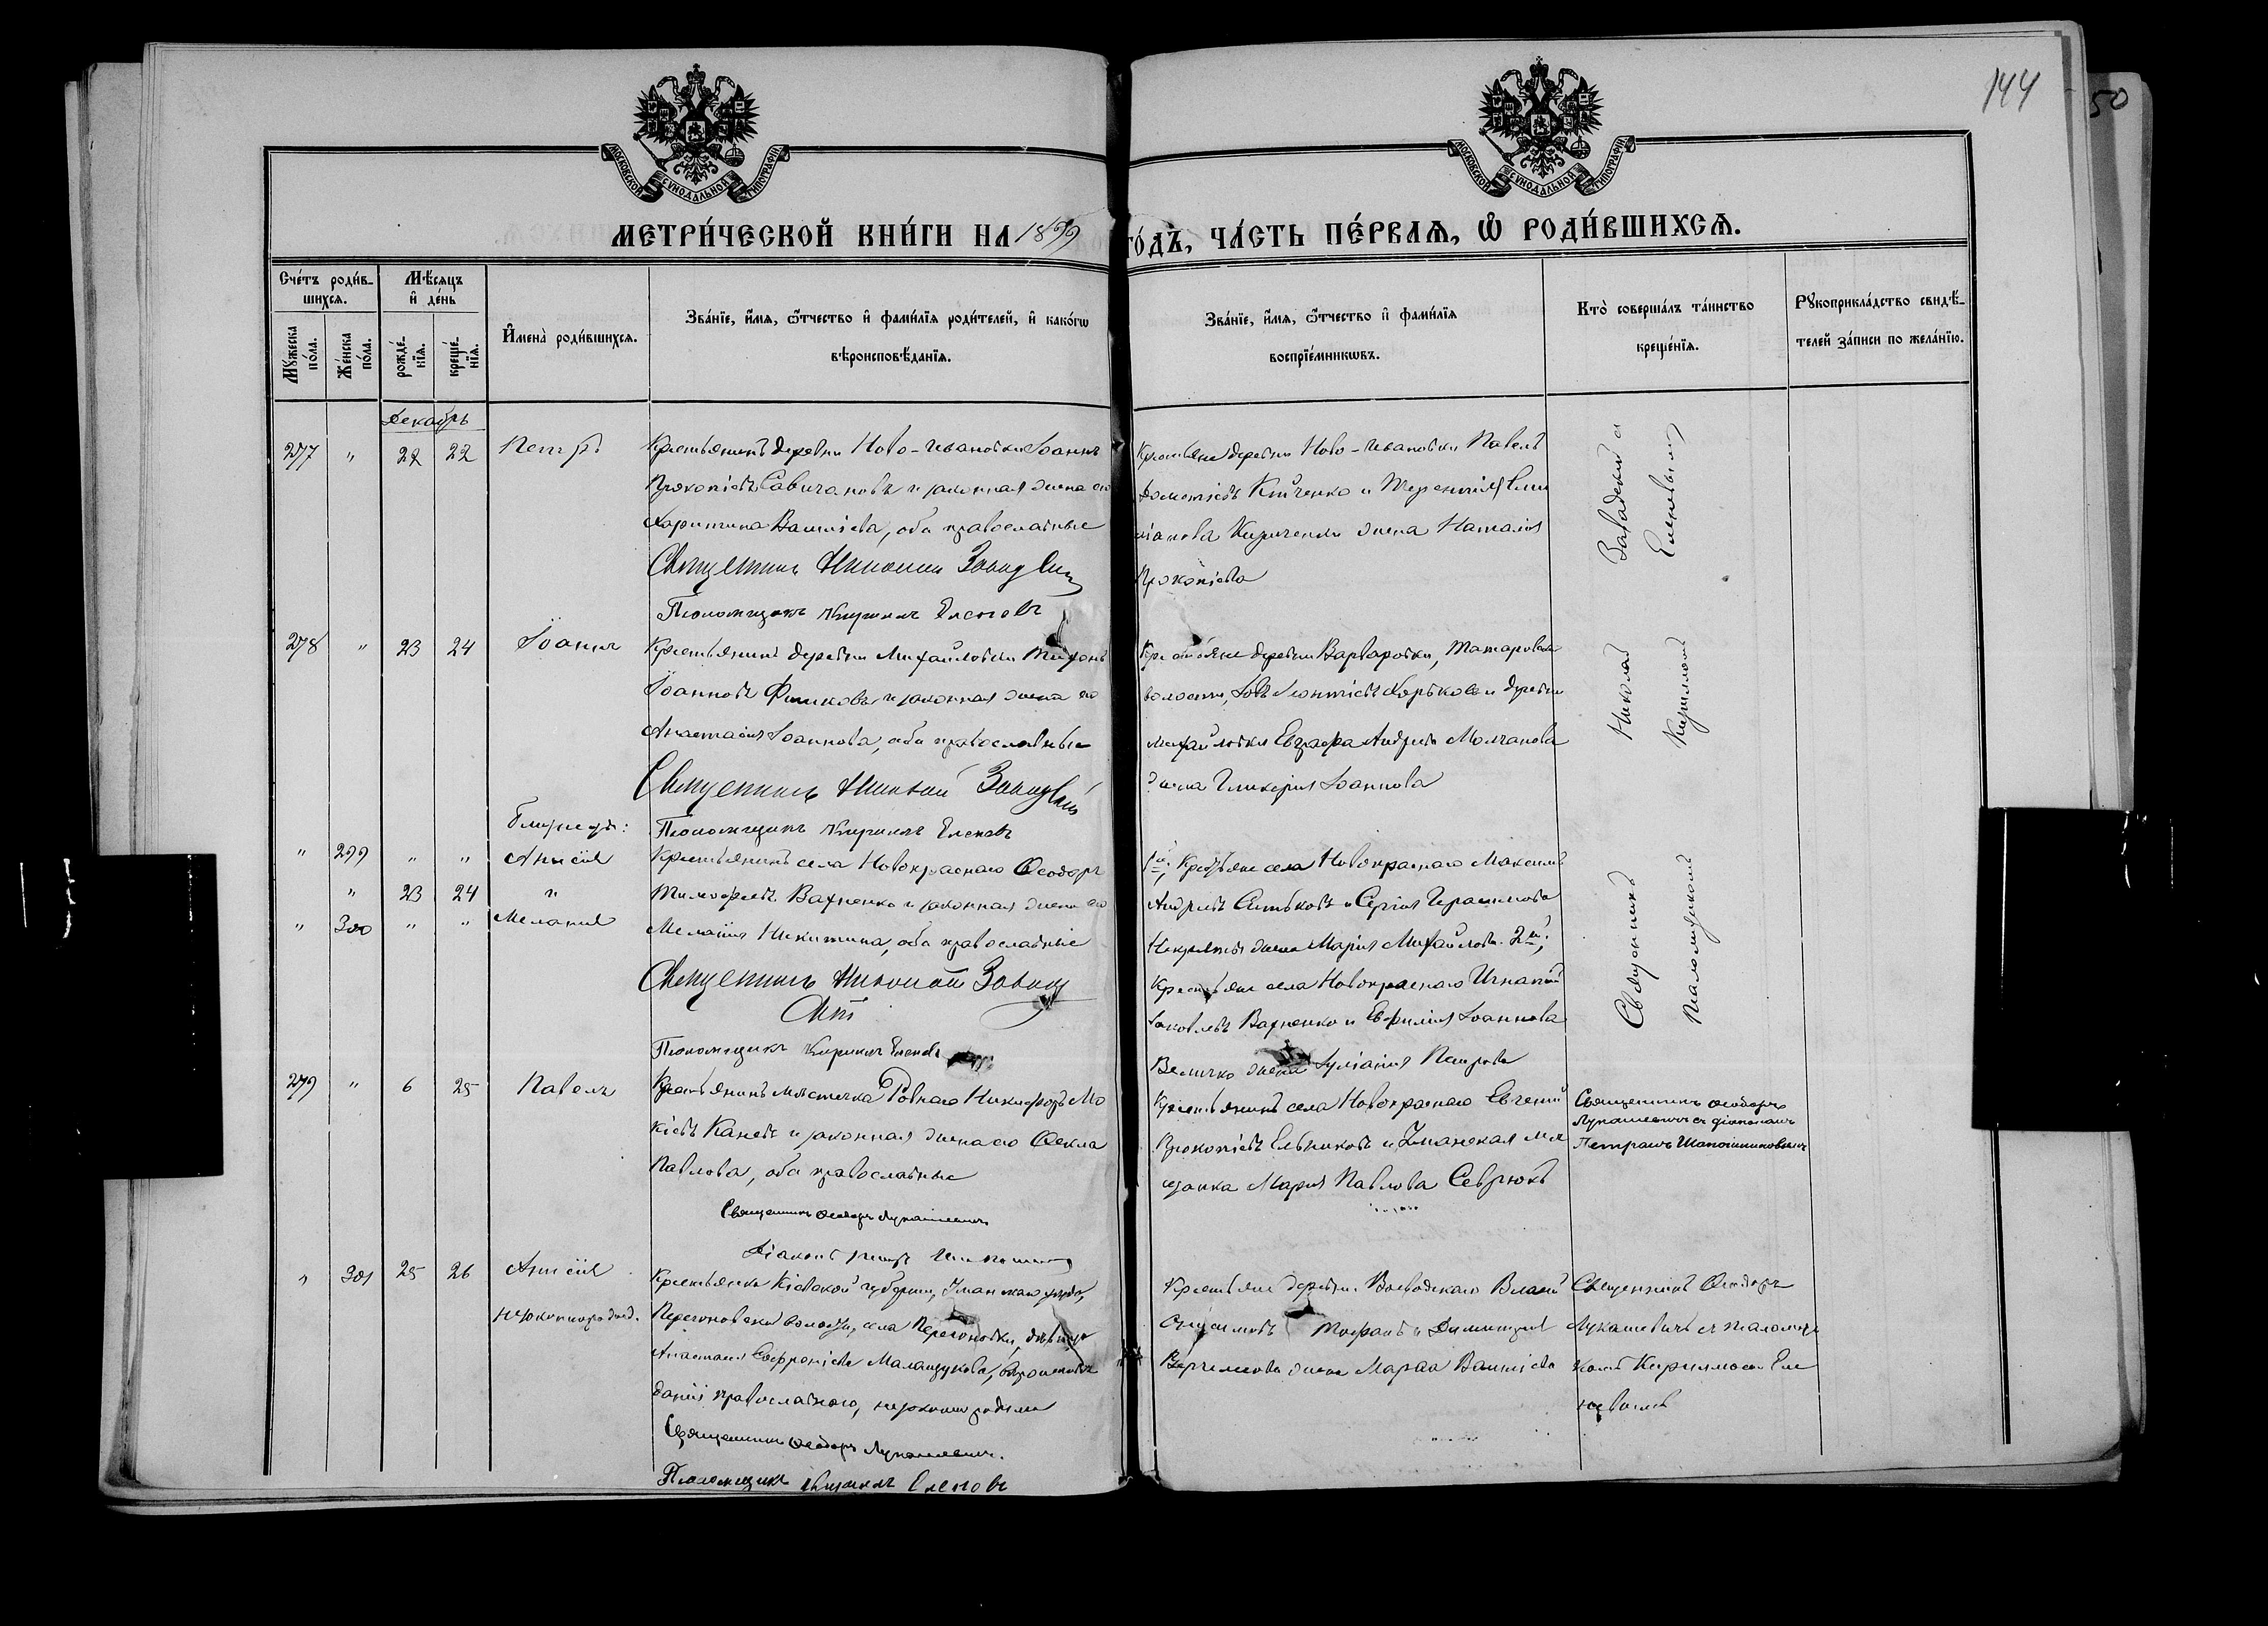 144
50
МОСКОВСКОЙ СѴНОДАЛЬНОЙ ТИПОГРАФІИ
МОСКОВСКОЙ СѴНОДАЛЬНОЙ ТИПОГРАФІИ
МЕТРИ́ЧЕСКОЙ КНИ́ГИ НА 1899 ГО́ДЪ, ЧА́СТЬ ПЕ́РВАѦ, Ѡ҆ РОДИ́ВШИХСѦ.
Сче́тъ роди́в-
шихся.
Мѣ́сяцъ
и҆ де́нь
Мꙋ́жеска
по́ла.
Же́нска
по́ла.
рожде́-
нїя.
креще́-
нїя.
И҆мена̀ роди́вшихся.
Зва́нїе, и҆́мя, ѻ҆́тчество и҆ фами́лїя роди́телей, и҆ како́гѡ
вѣроисповѣ́данїя.
Зва́нїе, и҆́мя, ѻ҆́тчество и҆ фами́лїя
воспрїе́мникѡвъ.
Кто̀ соверша́лъ та́инство
креще́нїя.
Рꙋкоприкла́дство свидѣ́-
телей за́писи по жела́нїю.
Декабрь
277 " 22 22 Петръ
Крестьянинъ деревни Ново-Ивановки Іоаннъ
Прокопіевъ Савичановъ и законная жена его
Харитина Васильева, оба православные
Священникъ Николай Завадскій
Псаломщикъ Кириллъ Еленевъ
Крестьяне деревни Ново-Ивановки Павелъ
Дометіевъ Кириченко и Терентія Еми
ліанова Кириченки жена Наталія
Прокопіева
278 " 23 24 Іоаннъ
Крестьянинъ деревни Михайловки Тихонъ
Іоанновъ Фишковъ и законная жена его
Анастасія Іоаннова, оба православные
Священникъ Николай Завадскій
Псаломщикъ Кириллъ Еленевъ
Крестьяне деревни Варваровки,
волости, Іовъ Леонтіевъ Хорьковъ и деревни
Михайловки Евграфа Андреева Молчанова
жена Гликерія Іоаннова
близнецы:
" 299 " " Анисія
" 23 24 "
" 300 " " Меланія
Крестьянинъ села Новокраснаго Ѳеодоръ
Тимофеевъ Вахненко и законная жена его
Меланія Никитина, оба православные
Священникъ Николай Завад
скій
Псаломщикъ Кириллъ Еленевъ
1-й; Крестьяне села Новокраснаго Максимъ
Андреевъ Ситьковъ и Сергія Герасимова
жена Марія Михайлова. 2-й;
Крестьяне села Новокраснаго Игнатій
Яковлевъ Вахненко и Евфимія Іоаннова
Величко жена Іуліанія Петрова
Священникъ Николай Завадскій и
Псаломщикъ Кириллъ Еленевымъ
279 " 6 25 Павелъ
Крестьянинъ мѣстечка Ровнаго Никифоръ Мо
кіевъ Каневъ и законная жена его Ѳекла
Павлова, оба православные
Священникъ Ѳеодоръ Лукашевичъ
Діаконъ Петръ
Крестьянинъ села Новокраснаго Евгеній
Прокопіевъ Ельниковъ и Уманская мѣ
щанка Марія Павлова Севрюкъ
Священникъ Ѳеодоръ
Лукашевичъ съ діакономъ
Петромъ Шапошниковымъ
" 301 25 26 Анисія
незаконнорожд.
Крестьянка Кіевской губерніи, Уманскаго уѣзда,
Перегоновской волости, села Перегоновки, дѣвица
Анастасія Софроніева Маландукова, вѣроиспов
данія православнаго, незаконно родила
Священникъ Ѳеодоръ Лукашевичъ.
Псаломщикъ Кириллъ Еленевъ
Крестьяне деревни Воеводскаго
и Димитрія
жена Марѳа Васильева
Священникъ Ѳеодоръ
Лукашевичъ съ псаломщи
комъ Кирилломъ Еле
невымъ